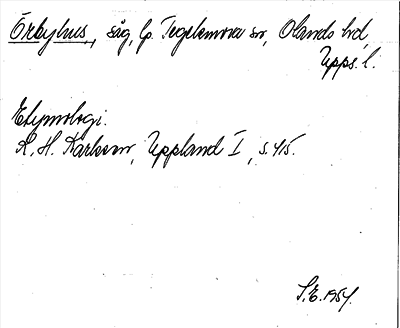 Örbyhus, såg, lp. Tegelsmora sn, Olands hd,
Upps. l.
Etymologi.
K. H. Karlsson, Uppland I, s. 415.
S.E. 1954.